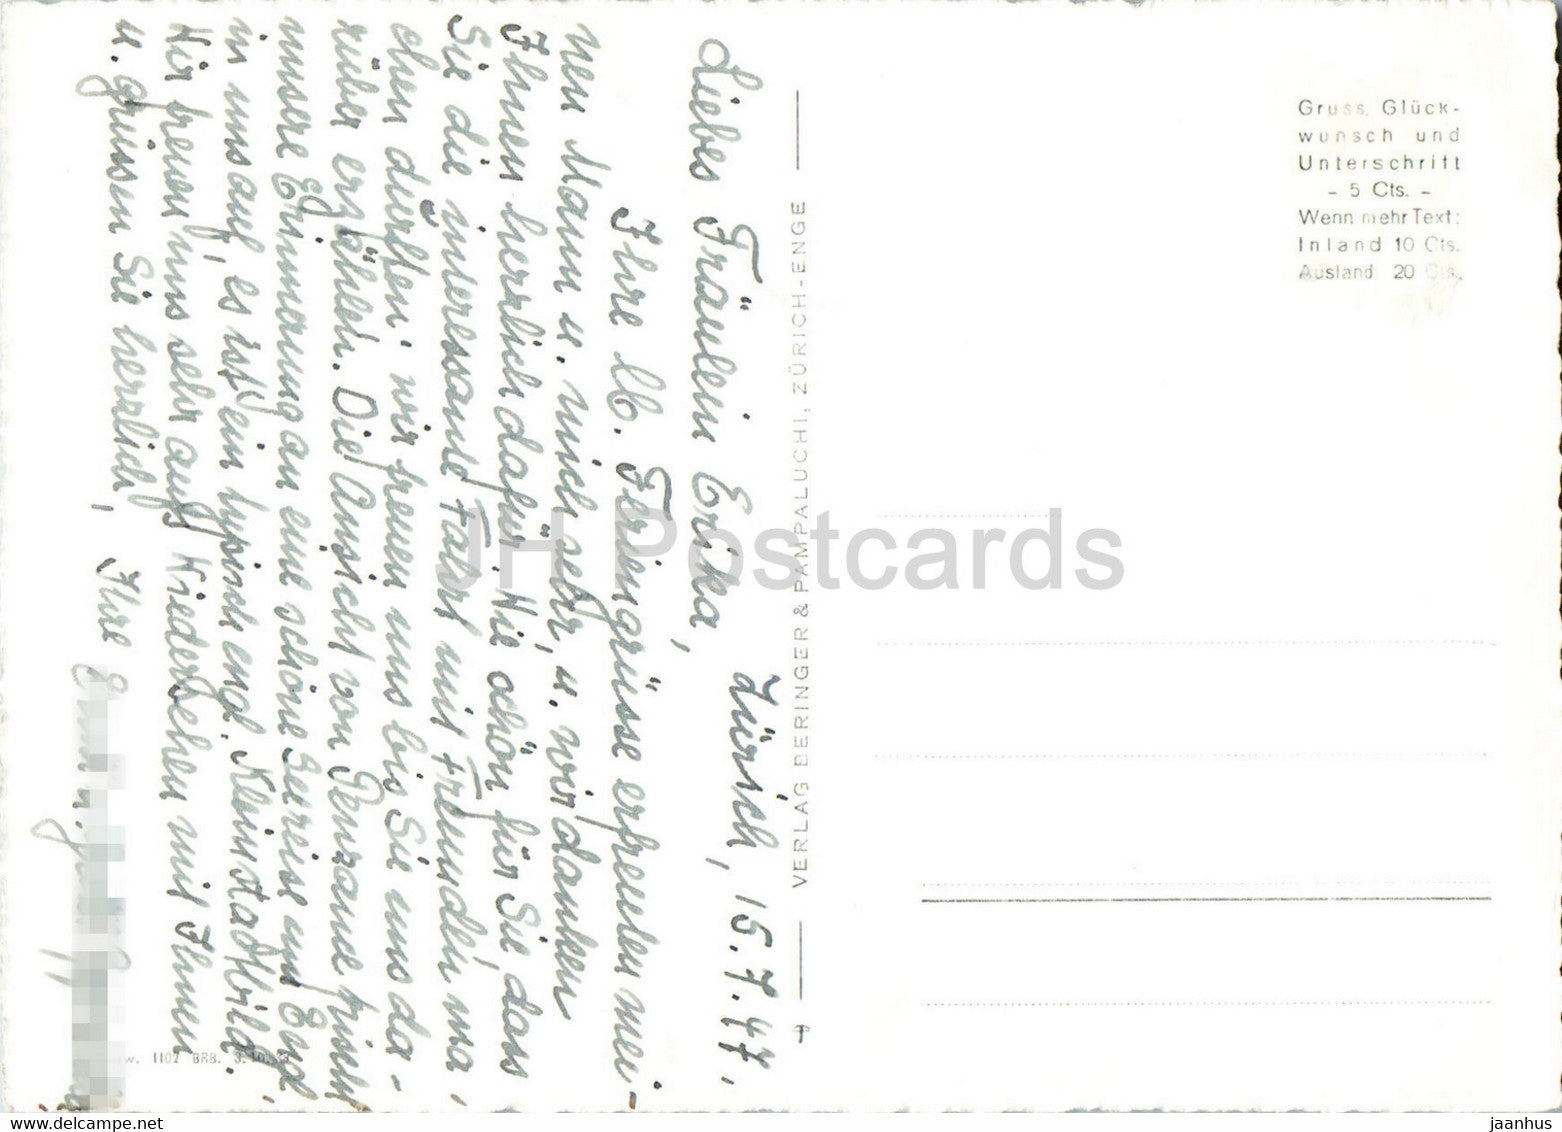 Zürich, 15.7.47.
Liebes Fräulein Erika,
Ihre lb. Feriengrüsse erfreuten mei-
nen Mann u. mich sehr, u. wir danken
Ihnen herzlich dafür. Wie schön für Sie, dass
Sie die interessante Fahrt mit Freunden ma,
chen durften; wir freuen uns bis Sie uns da-
rüber erzählen. Die Ansicht von Penzance frischt
unsere Erinnerung an eine schöne Seereise um Engl.
in uns auf, es ist ein typisch engl. Kleinstadtbild.
Wir freuen uns sehr aufs Wiedersehen mit Ihnen
u. grüssen Sie herzlich, Ihre
VERLAG BERINGER & PAMPALUCHI, ZÜRICH-ENGE
Gruss, Glück-
wunsch und
Unterschrift
- 5 Cts. -
Wenn mehr Text:
Inland 10 Cts.
Ausland 20 Cts.
w. 1102 BRB. 3.10.33
JH Postcards
www.delcampe.net
jaanhus